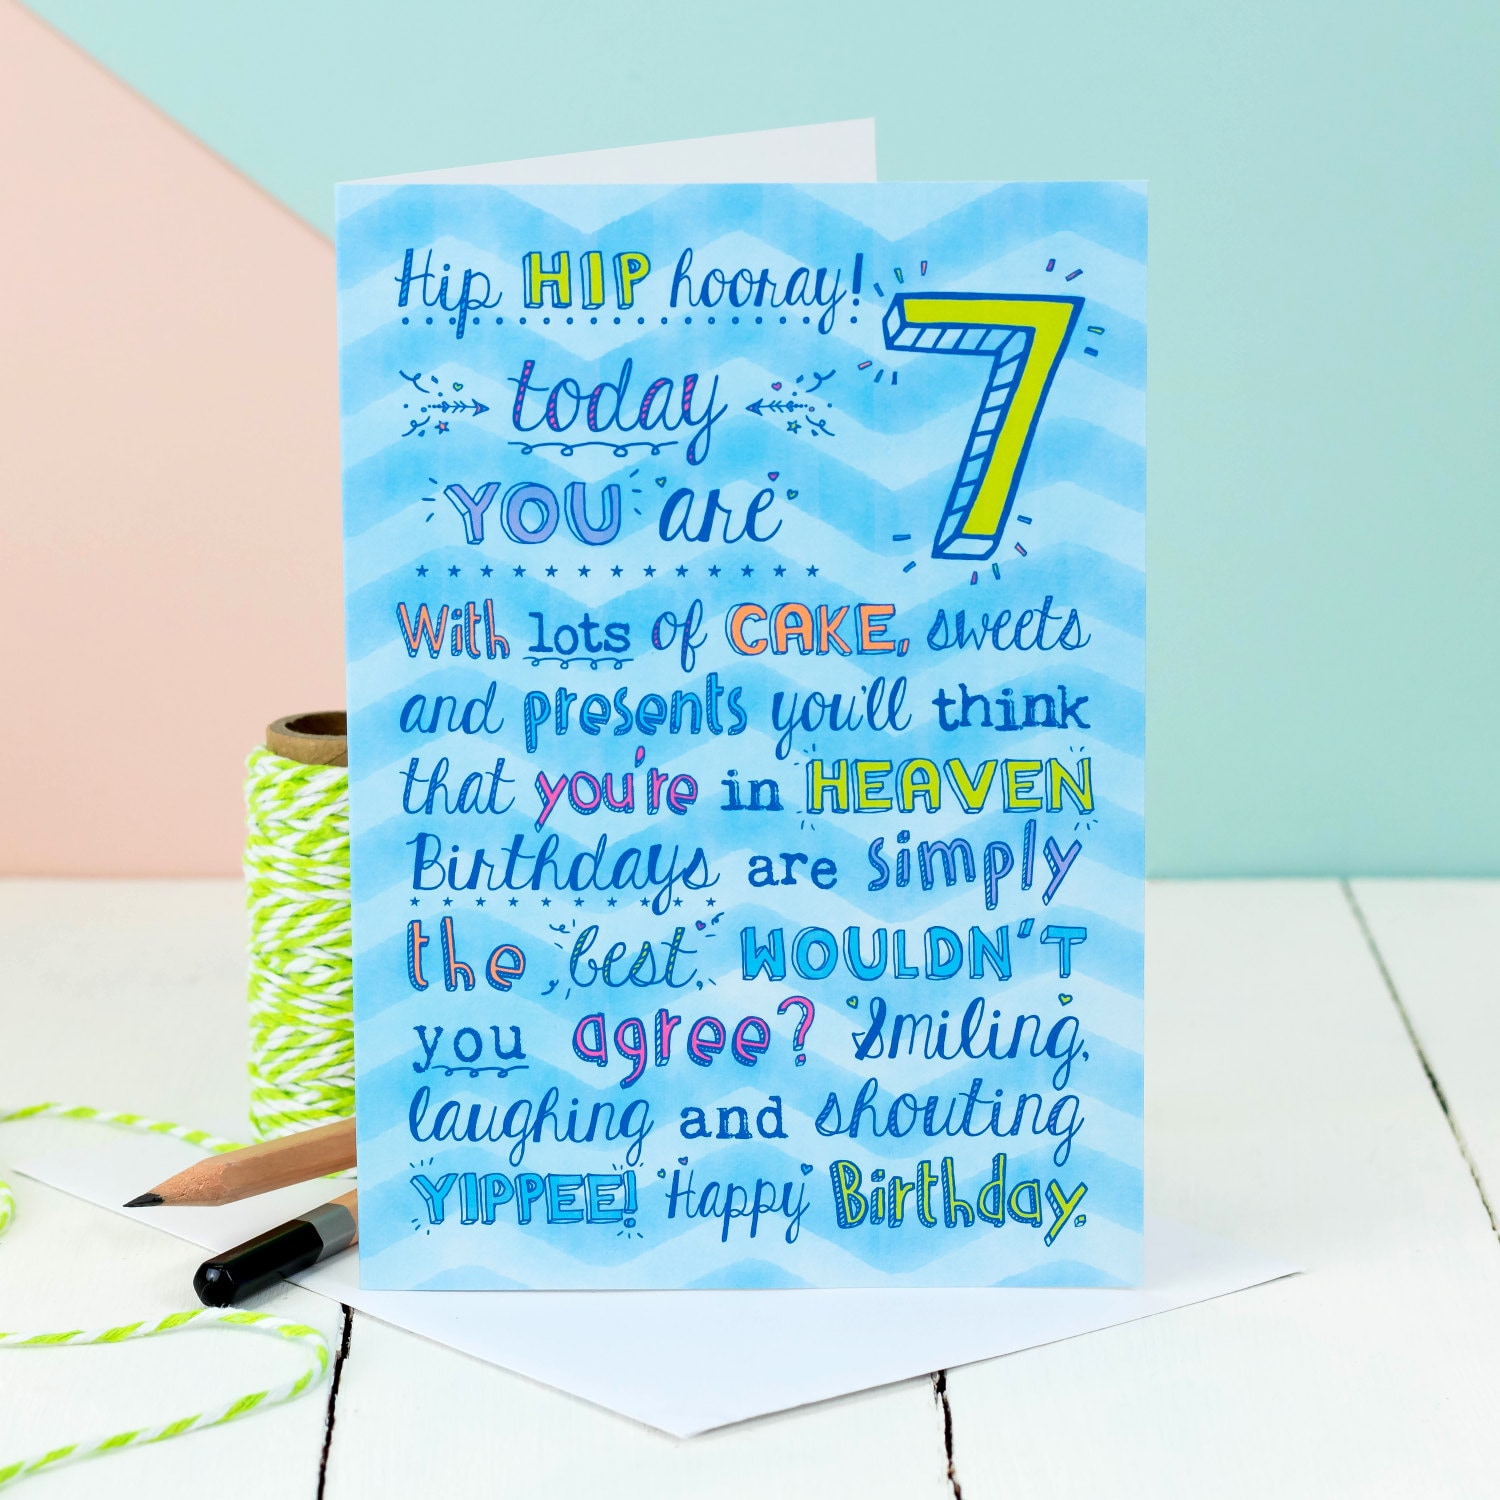 Hip HIP hooray!
today
YOU are 7
With lots of CAKE, sweets
and presents you'll think
that you're in HEAVEN
Birthdays are simply
the best, WOULDN'T
you agree? Smiling,
laughing and shouting
YIPPEE! Happy Birthday.